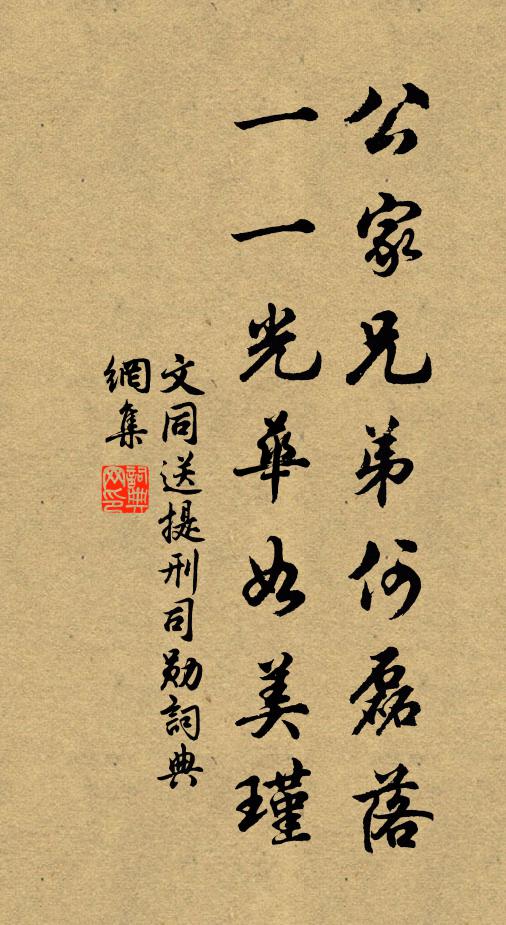 公家兄弟何磊落
一一光華如美瑾
文同送提刑司勋詞典
網集
詞典
网印